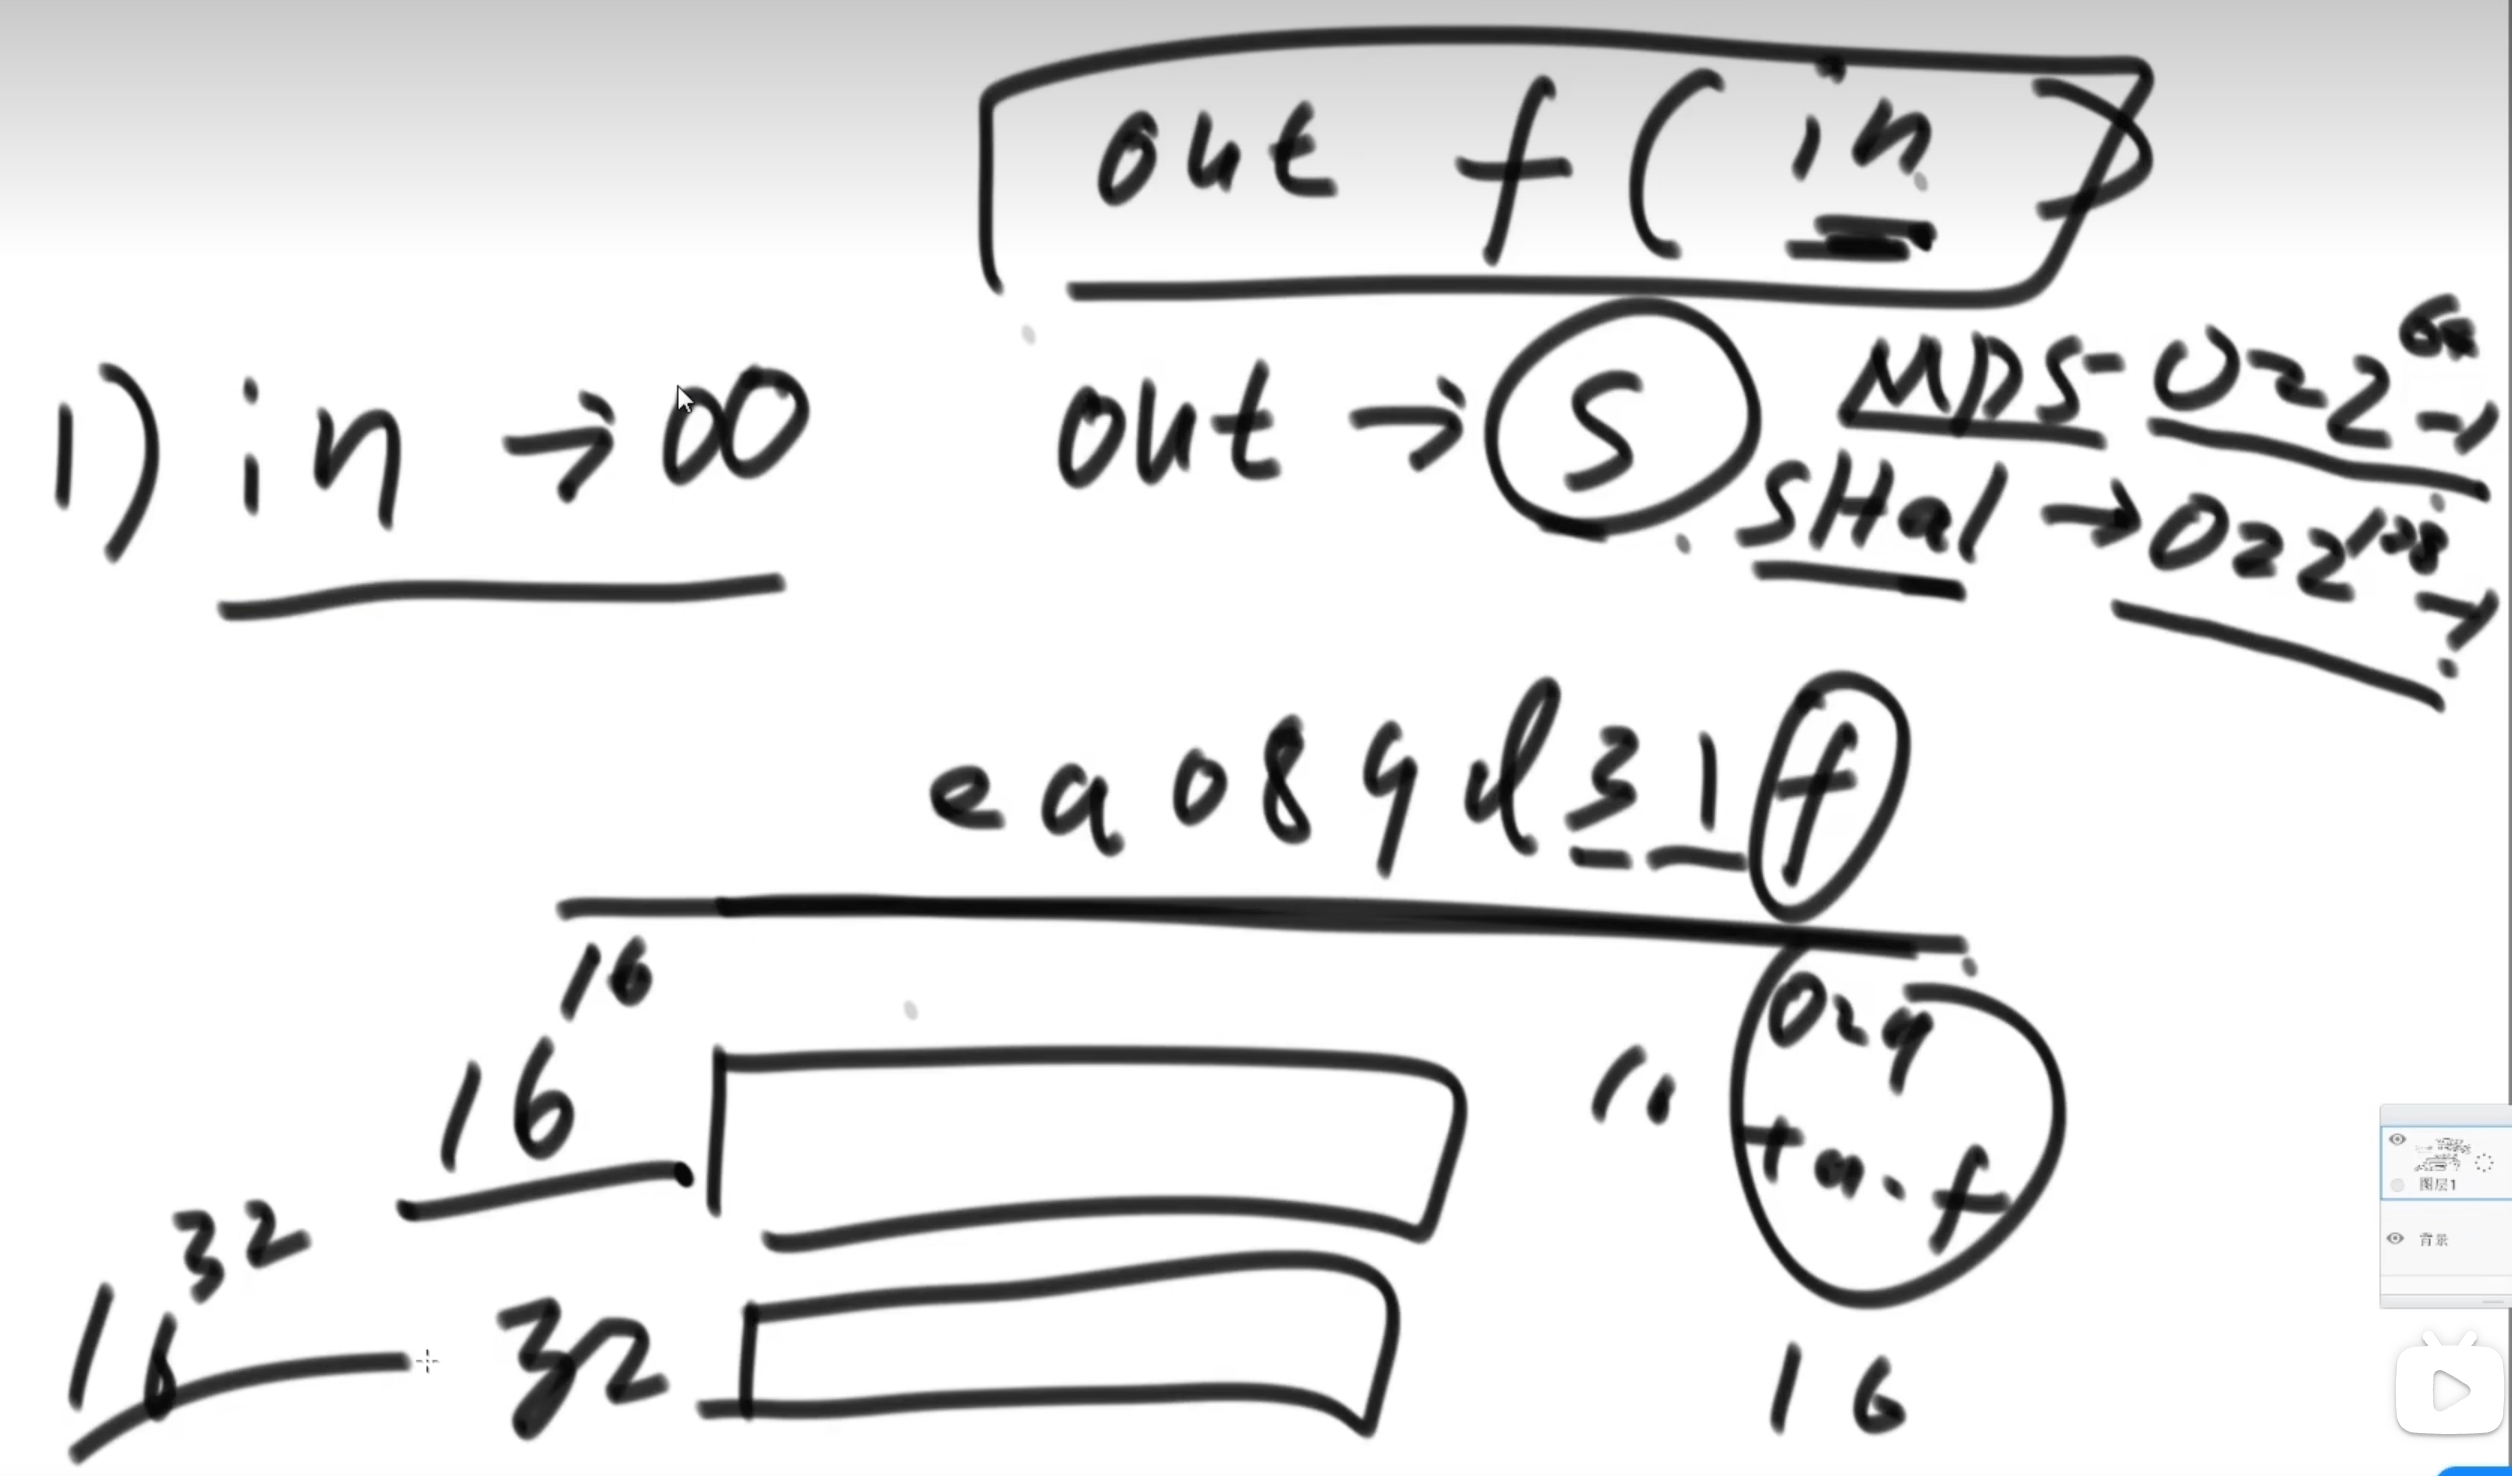 out f ( in )
1) in → ∞ out → S MD5 - 0~2^64 - 1
SHa1 → 0~2^128 - 1
e a 0 8 9 d 3 1 f
16^16
16^32
32
0~9
+ a. f
16
图层1
背景